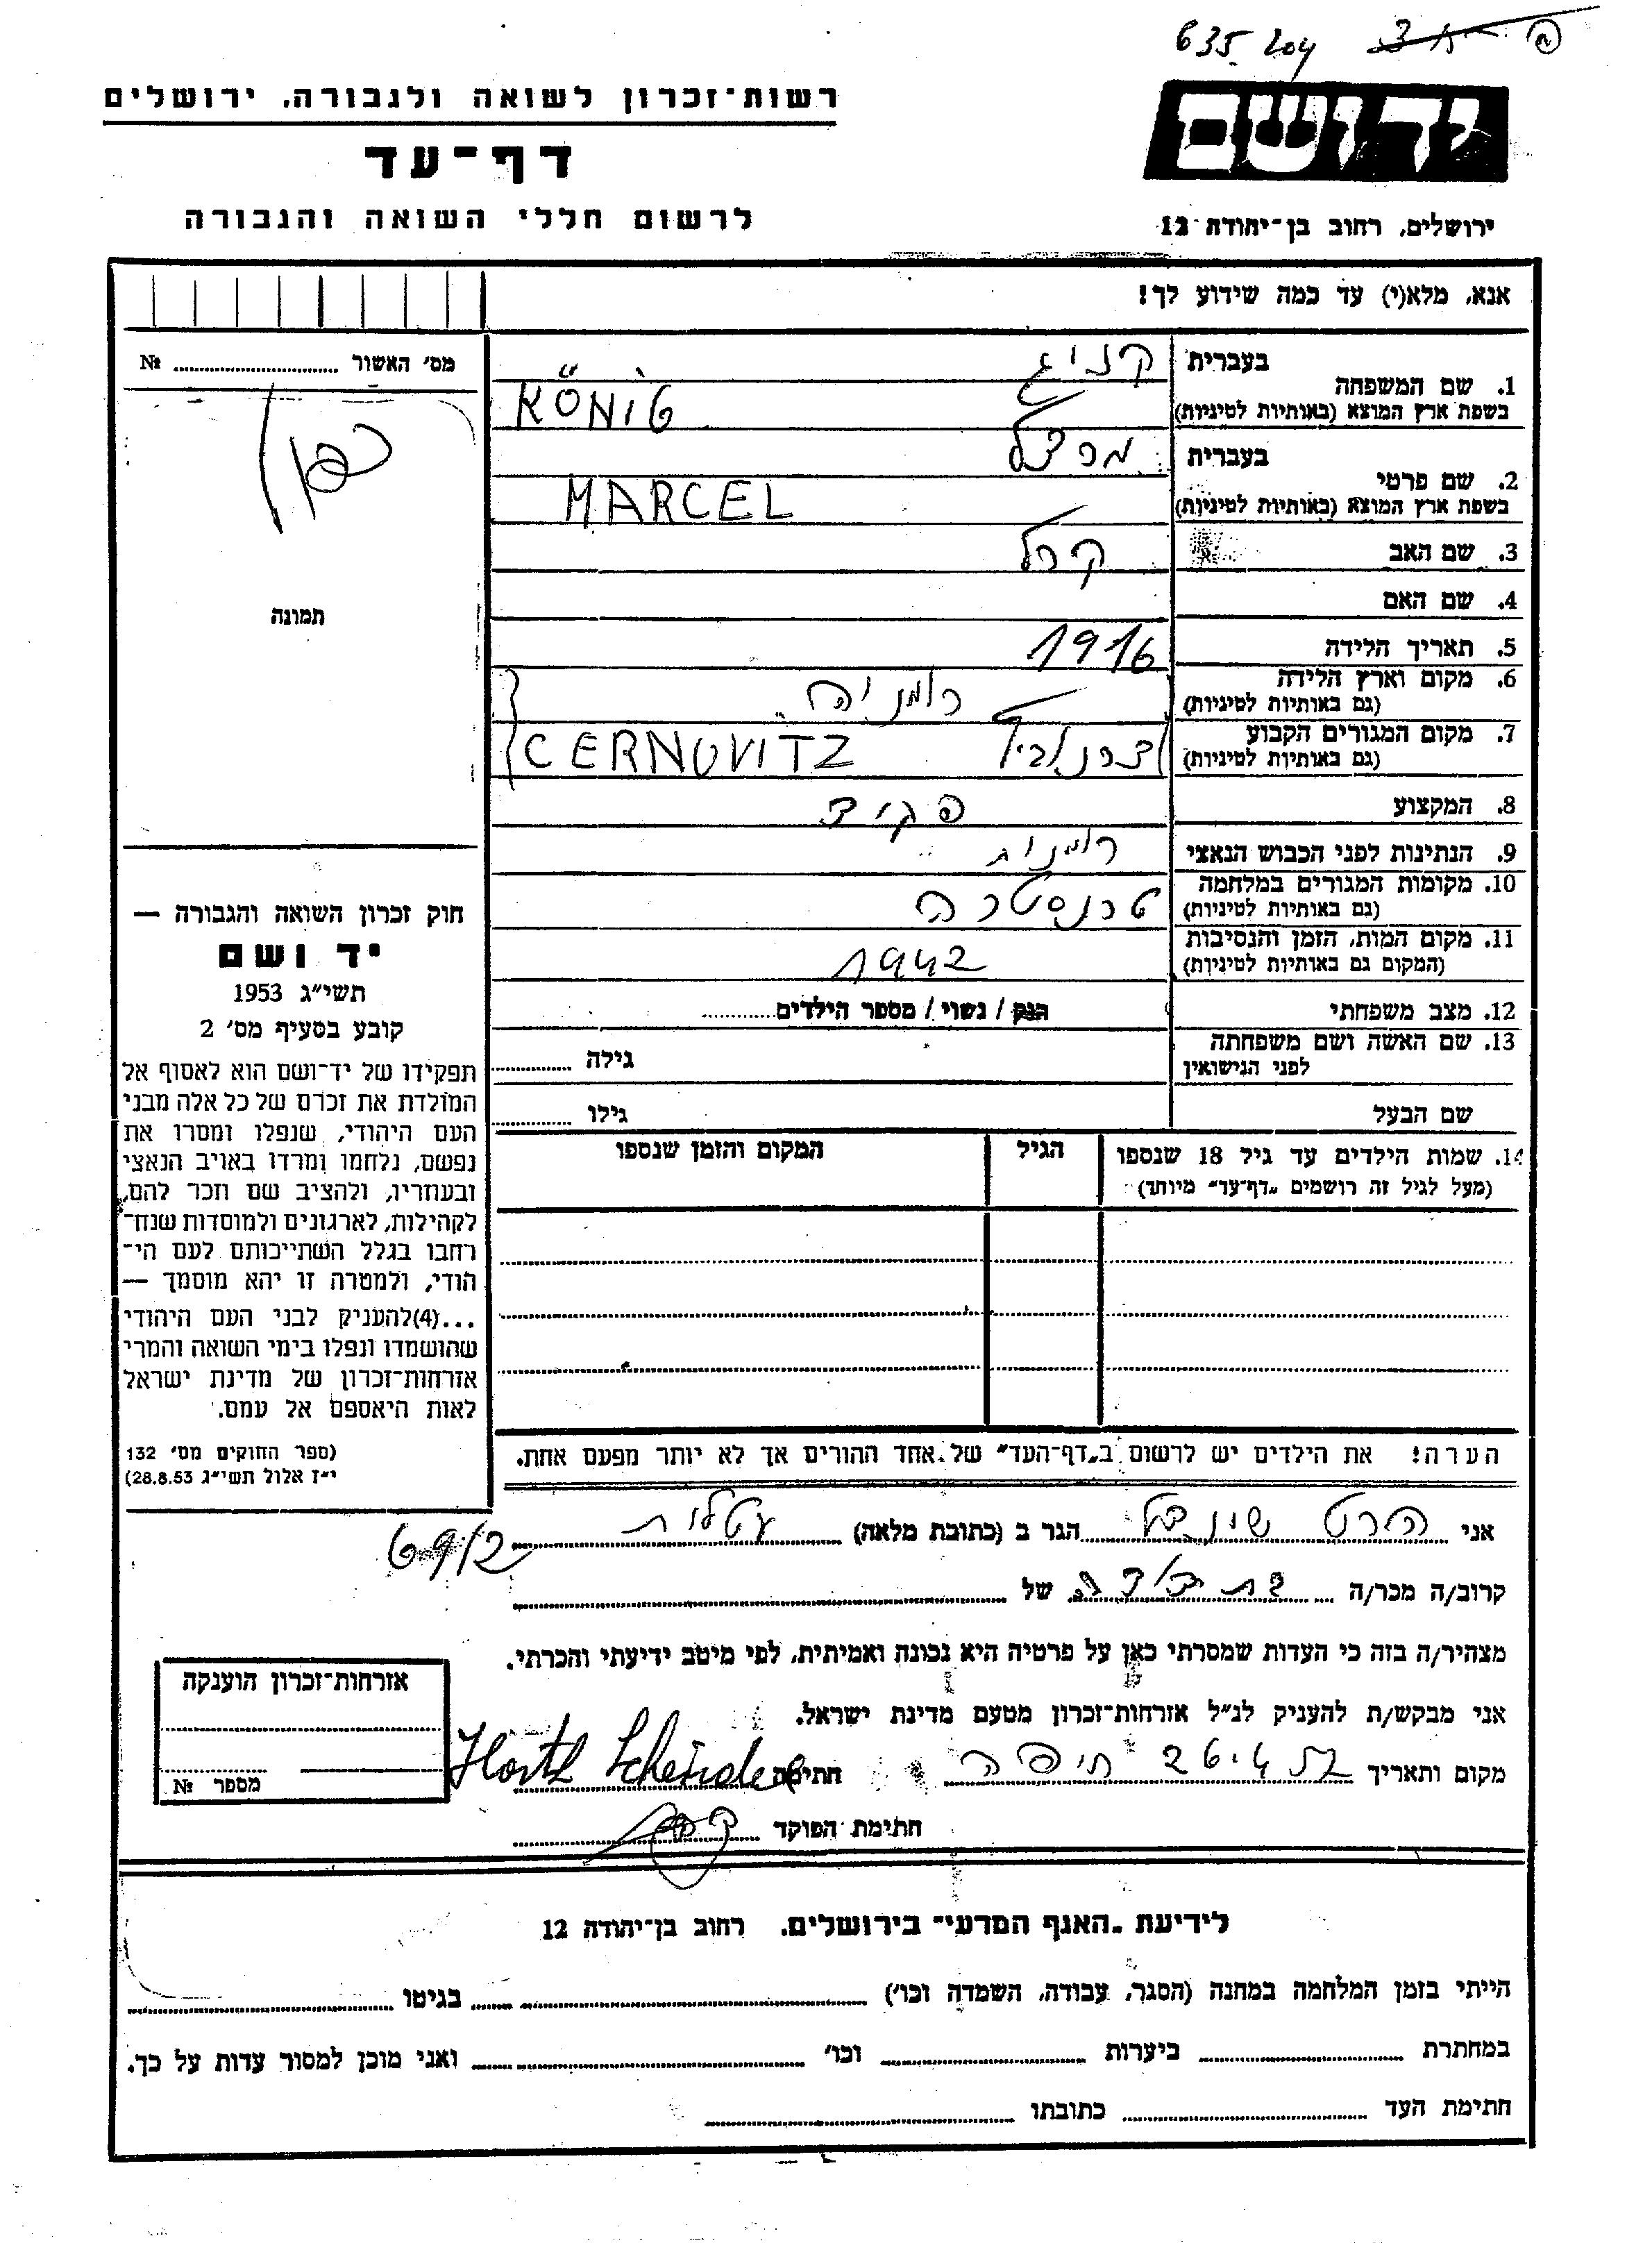 635 204
יד ושם
רשות-זכרון לשואה ולגבורה, ירושלים
דף-עד
לרשום חללי השואה והגבורה
ירושלים, רחוב בן-יהודה 12
אנא, מלא(י) עד כמה שידוע לך!
מס׳ האשור № ........
1. שם המשפחה בעברית קניג
בשפת ארץ המוצא (באותיות לטיניות) KÖNIG
2. שם פרטי בעברית מרצל
בשפת ארץ המוצא (באותיות לטיניות) MARCEL
3. שם האב קרל
4. שם האם
5. תאריך הלידה 1916
6. מקום וארץ הלידה רומניה
(גם באותיות לטיניות)
7. מקום המגורים הקבוע צרנוביץ CERNOVITZ
(גם באותיות לטיניות)
8. המקצוע פקיד
9. הנתינות לפני הכבוש הנאצי רומנית
10. מקומות המגורים במלחמה טרנסטריה
(גם באותיות לטיניות)
11. מקום המות, הזמן והנסיבות 1942
(המקום גם באותיות לטיניות)
12. מצב משפחתי רווק / נשוי / מספר הילדים........
13. שם האשה ושם משפחתה לפני הנישואין גילה ........
שם הבעל גילו ........
14. שמות הילדים עד גיל 18 שנספו
(מעל לגיל זה רושמים „דף-עד" מיוחד)
הגיל
המקום והזמן שנספו
הערה! את הילדים יש לרשום ב„דף-העד" של אחד ההורים אך לא יותר מפעם אחת.
תמונה
חוק זכרון השואה והגבורה —
יד ושם
תשי״ג 1953
קובע בסעיף מס׳ 2
תפקידו של יד-ושם הוא לאסוף אל
המולדת את זכרם של כל אלה מבני
העם היהודי, שנפלו ומסרו את
נפשם, נלחמו ומרדו באויב הנאצי
ובעוזריו, ולהציב שם וזכר להם,
לקהילות, לארגונים ולמוסדות שנח-
רבו בגלל השתייכותם לעם הי-
הודי, ולמטרה זו יהא מוסמך —
...(4)להעניק לבני העם היהודי
שהושמדו ונפלו בימי השואה והמרי
אזרחות-זכרון של מדינת ישראל
לאות היאספם אל עמם.
(ספר החוקים מס׳ 132
י״ז אלול תשי״ג 28.8.53)
אני הרט שינדל הגר ב (כתובת מלאה) עטלית
69/2
קרוב/ה מכר/ה בת דודה של ........
מצהיר/ה בזה כי העדות שמסרתי כאן על פרטיה היא נכונה ואמיתית, לפי מיטב ידיעתי והכרתי.
אני מבקש/ת להעניק לנ״ל אזרחות-זכרון מטעם מדינת ישראל.
מקום ותאריך חיפה חתימה
חתימת הפוקד
אזרחות-זכרון הוענקה
מספר №
לידיעת „האגף המדעי" בירושלים, רחוב בן-יהודה 12
הייתי בזמן המלחמה במחנה (הסגר, עבודה, השמדה וכו׳) ........ בגיטו ........
במחתרת ........ ביערות ........ וכו׳ ........ ואני מוכן למסור עדות על כך.
חתימת העד ........ כתובתו ........